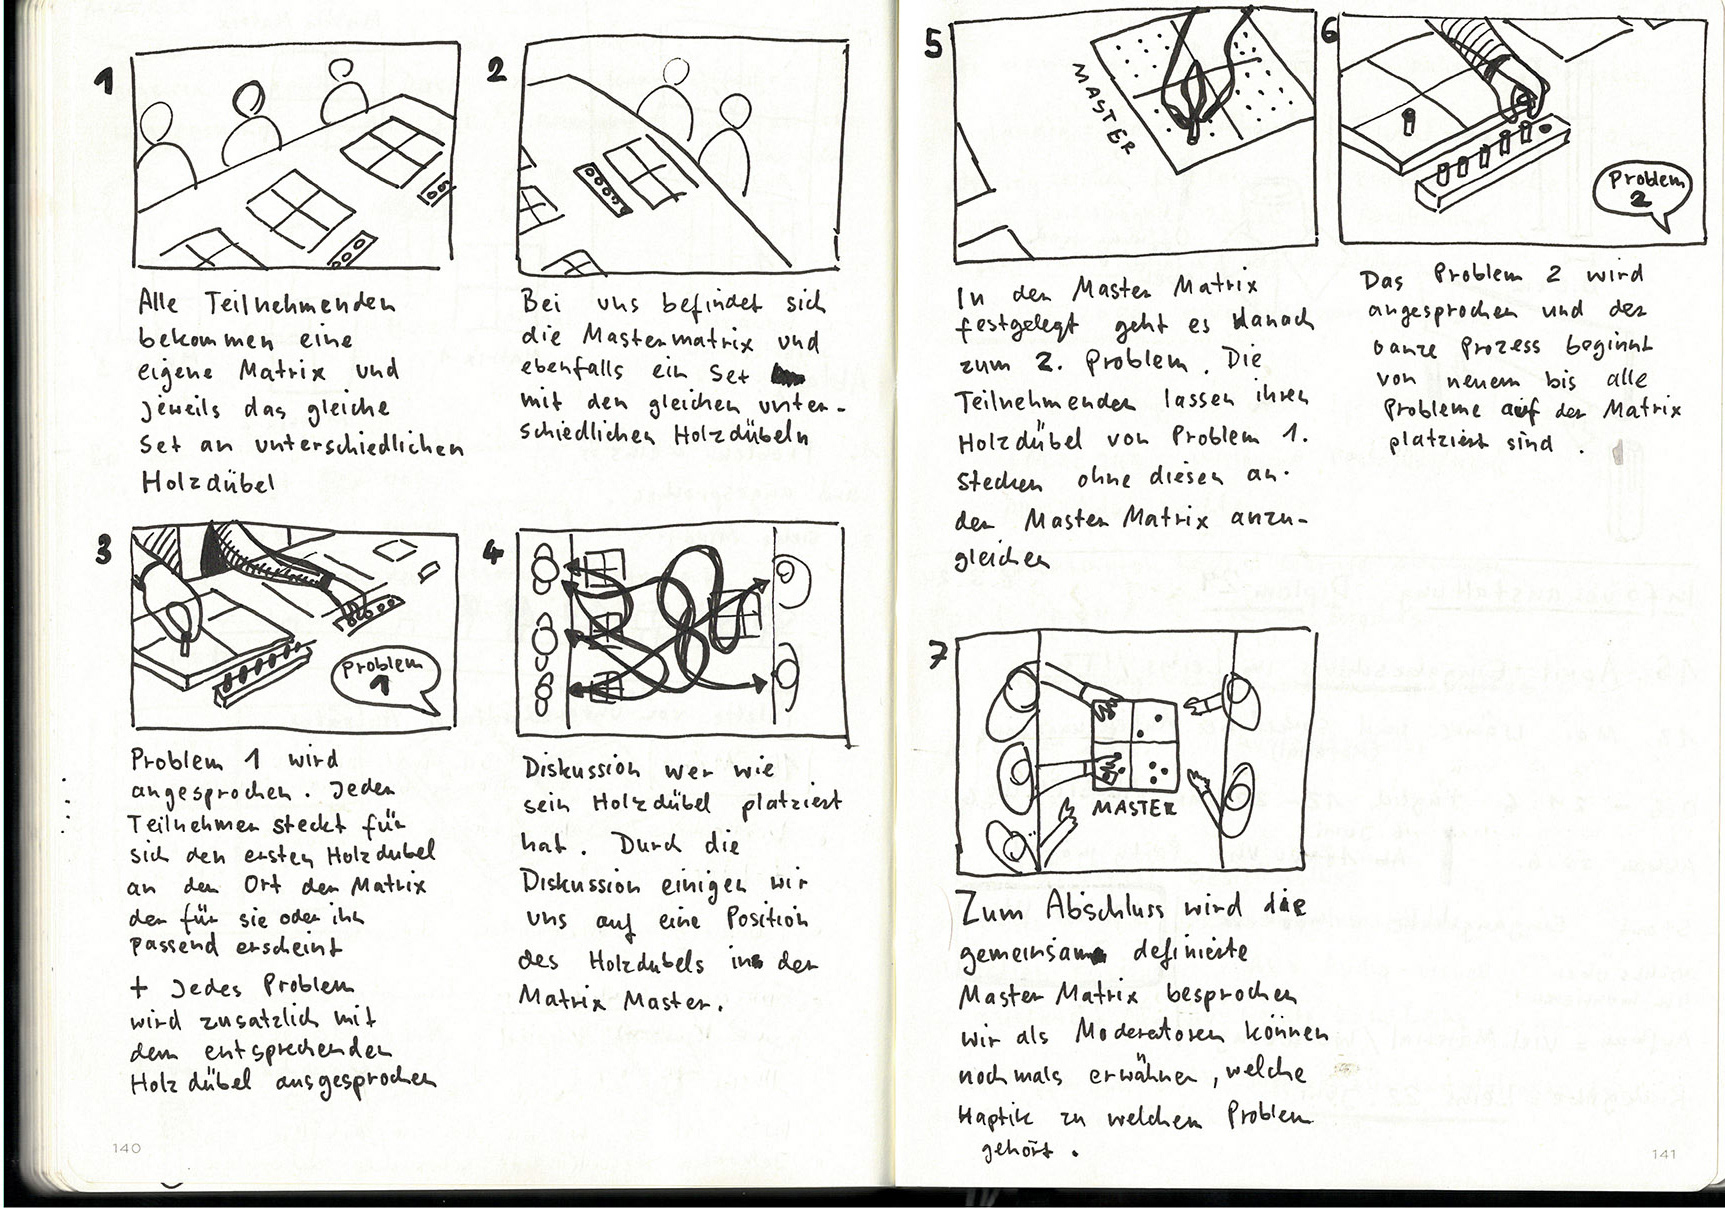 1
Alle Teilnehmenden
bekommen eine
eigene Matrix und
jeweils das gleiche
Set an unterschiedlichen
Holzdübel
2
Bei uns befindet sich
die Mastermatrix und
ebenfalls ein Set
mit den gleichen unter-
schiedlichen Holzdübeln
3
Problem
1
Problem 1 wird
angesprochen. Jeder
Teilnehmer steckt für
sich den ersten Holzdubel
an den Ort der Matrix
der für sie oder ihn
passend erscheint
+ Jedes Problem
wird zusätzlich mit
dem entsprechenden
Holzdübel ausgesprochen
4
Diskussion wer wie
sein Holzdübel platziert
hat. Durch die
Diskussion einigen wir
uns auf eine Position
des Holzdubels in der
Matrix Master.
140
5
MASTER
In der Master Matrix
festgelegt geht es danach
zum 2. Problem. Die
Teilnehmenden lassen ihren
Holzdübel von Problem 1.
stecken ohne diesen an
der Master Matrix anzu-
gleichen
6
Problem
2
Das Problem 2 wird
angesprochen und der
ganze Prozess beginnt
von neuem bis alle
Probleme auf der Matrix
platziert sind.
7
MASTER
Zum Abschluss wird die
gemeinsam definierte
Master Matrix besprochen
wir als Moderatoren können
nochmals erwähnen, welche
Haptik zu welchem Problem
gehört.
141